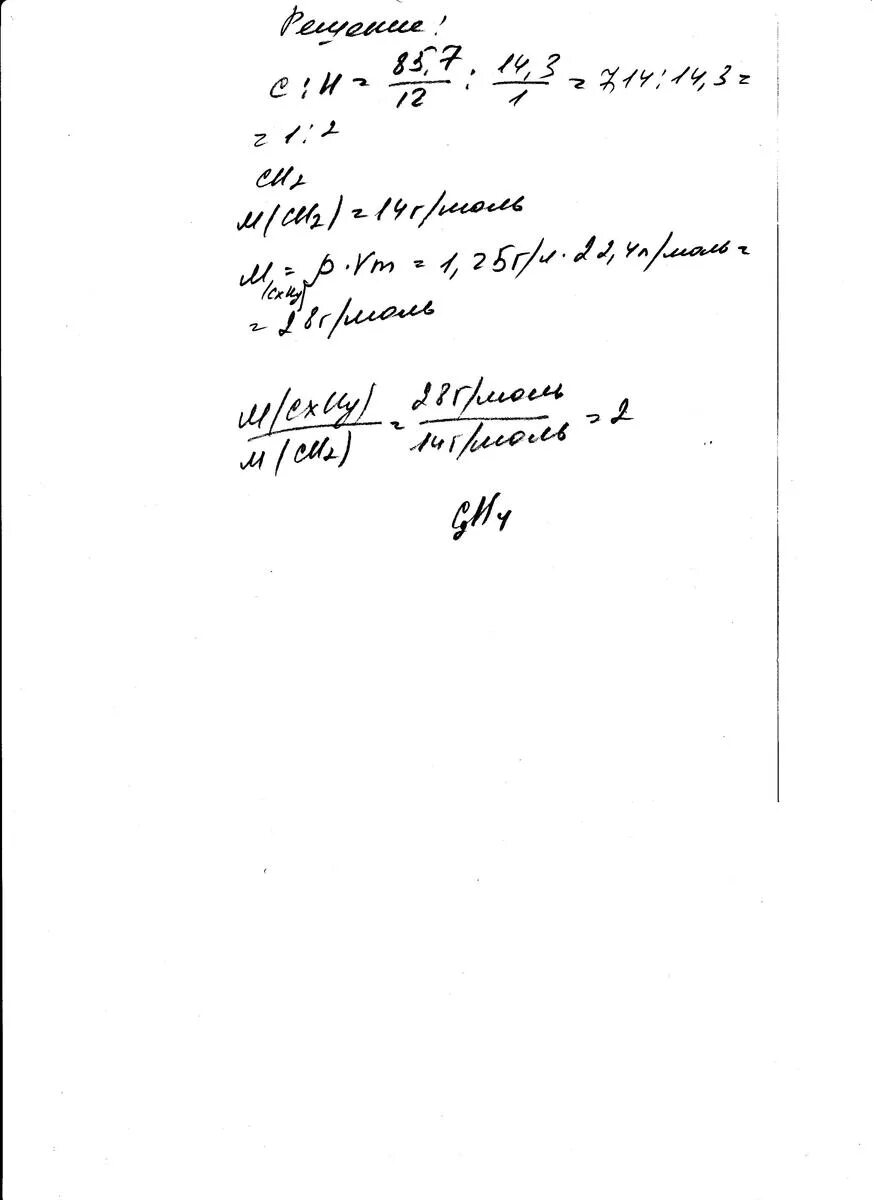 Решение!
C : H = 85,7/12 : 14,3/1 = 7,14 : 14,3 =
= 1 : 2
CH₂
M(CH₂) = 14 г/моль
M(CxHy) = ρ · Vm = 1,25 г/л · 22,4 л/моль =
= 28 г/моль
M(CxHy)/M(CH₂) = 28 г/моль/14 г/моль = 2
C₂H₄